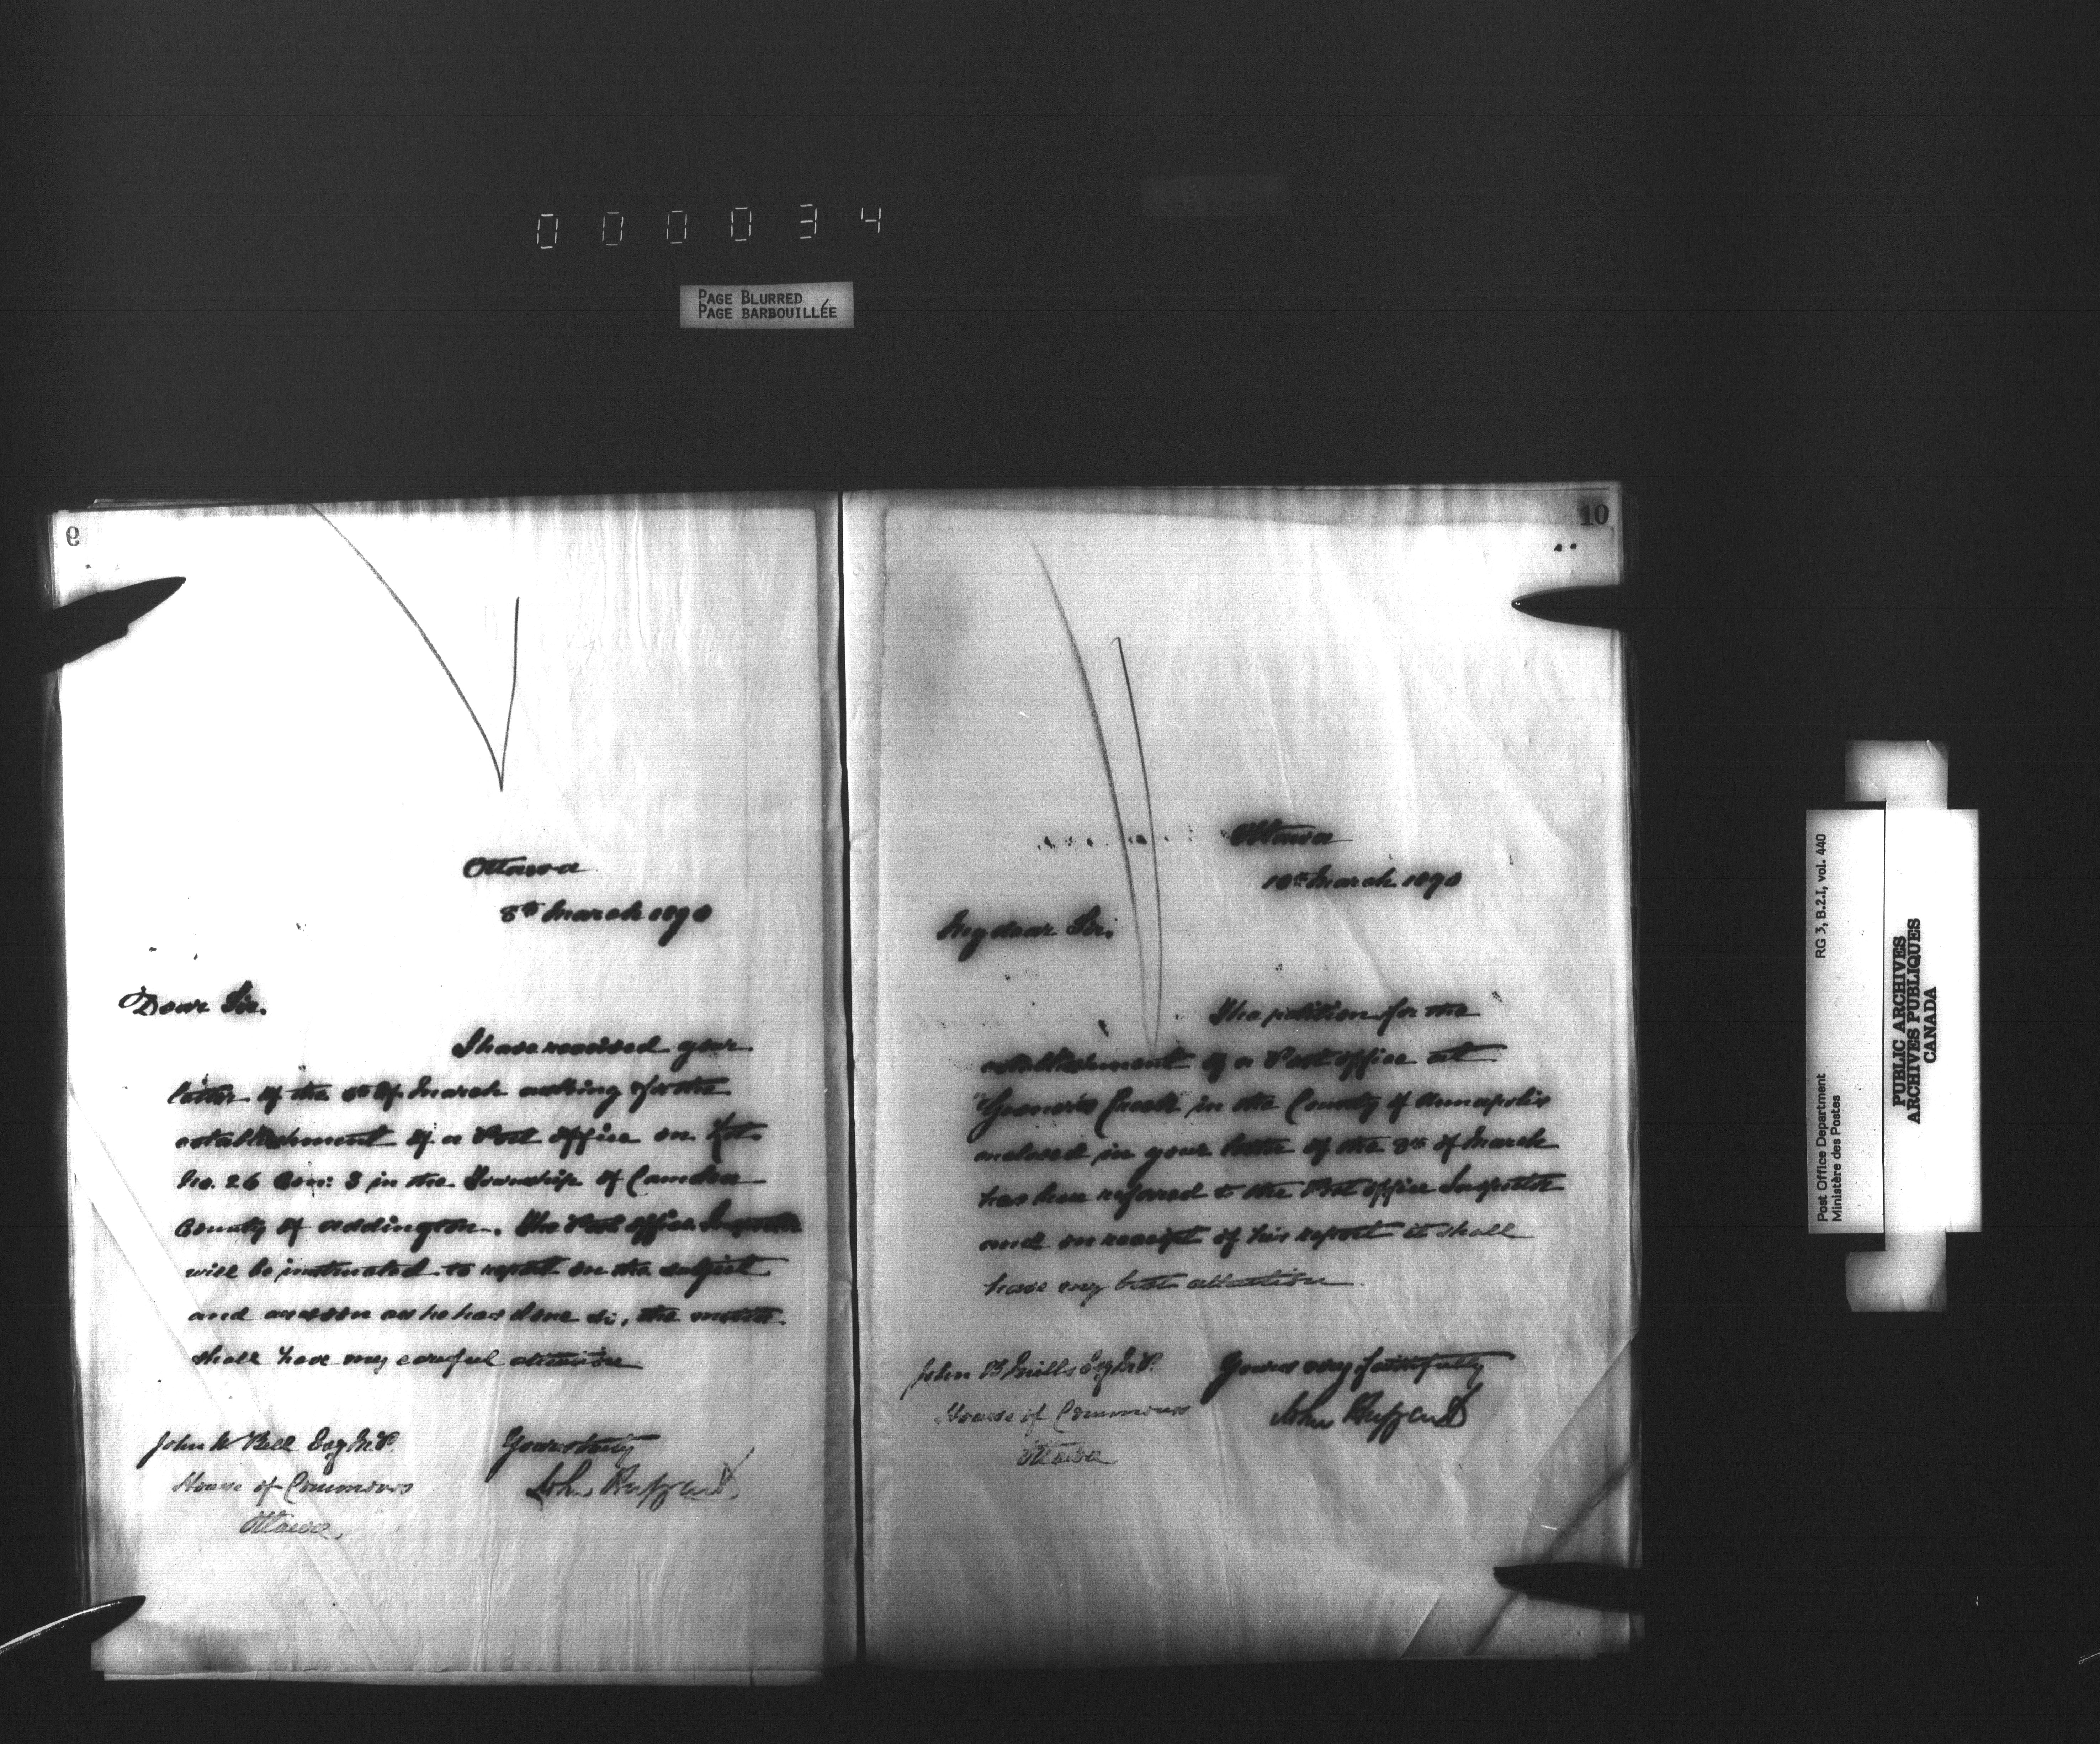 000034
PAGE BLURRED
PAGE BARBOUILLÉE
9
Ottawa
8th March 1890
Dear Sir.
I have received your
letter of the of March asking for the
establishment of a Post Office on Lot
No. 26 Con: 3 in the Township of Camden
County of Addington. The Post Office Inspector
will be instructed to report on the subject
and as soon as he has done so, the matter
shall have my careful attention
John W Bell Esq M.P.
House of Commons
Ottawa
Yours truly
John Haggart
10
Ottawa
10th March 1890
My dear Sir.
The petition for the
establishment of a Post Office at
in the County of Annapolis
enclosed in your letter of the 8th of March
has been referred to the Post Office Inspector
and on receipt of his report it shall
have my best attention
John B Mills Esq M.P.
House of Commons
Ottawa
Yours very faithfully
John Haggart
Post Office Department
Ministère des Postes
RG 3, B.2.I, vol. 440
PUBLIC ARCHIVES
ARCHIVES PUBLIQUES
CANADA